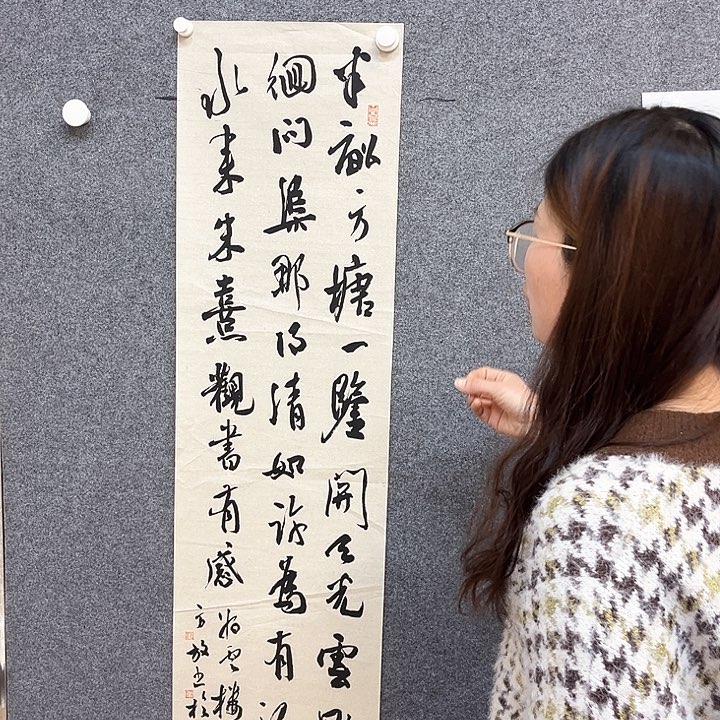 半畝方塘一鑒開天光雲
徊問渠那得清如許為有
水来朱熹觀書有感
樓
方